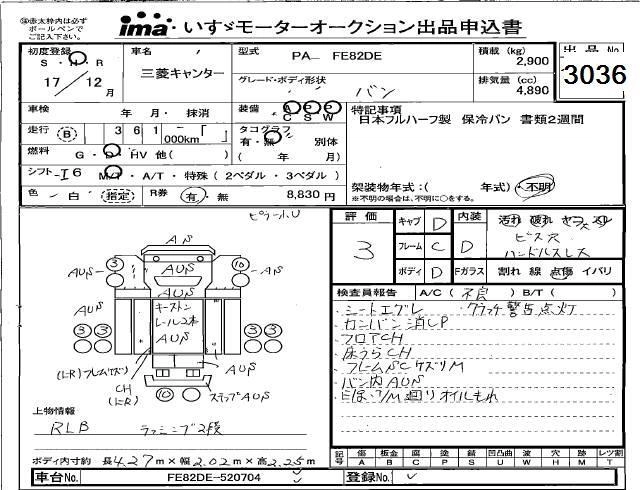 ※赤太枠内は必ず
ボールペンで
ご記入下さい。
ima いすゞモーターオークション出品申込書
初度登録
S・H・R
17/12月
車名
三菱キャンター
型式
PA- FE82DE
グレード・ボディ形状
バン
積載 (kg)
2,900
排気量 (cc)
4,890
出品No
3036
車検 年・月・抹消
装備 A P W
C S W
特記事項
日本フルハーフ製 保冷バン 書類2週間
走行 B 361 000km
タコグラフ
有・無 別体
( 年 月)
燃料 G・D・HV 他( )
シフト I6 M/T・A/T・特殊 (2ペダル・3ペダル)
架装物年式:( 年式)・不明
※不明の場合は、不明に○をする。
色 白 指定 R券 有・無 8,830円
評価 3
キャブ D
フレーム C D
ボディ D
内装 汚れ 破れ ヤコゲ スレ
ビス穴
ハンドルスレ
Fガラス 割れ 線 点傷 イバリ
検査員報告 A/C(不良) B/T( )
シートエグレ 警告点灯
カンバン消しP
フロアCH
床うらCH
フレームSCケズリM
バン内AUS
Eほ、T/M回りオイルもれ
AS
AUS 3 10 AS
AUS
キーストン
レール2本
AUS
AUS
3 3
AUS
3 3
AUS
(LR)フレームケズリ
CH
(LR)
10
ステップAUS
上物情報
RLB ラッシング2段
ボディ内寸約 長4.27m×巾2.02m×高2.25m
記号 傷 板金 腐 塗 錆 凹凸曲 波 穴 跡 レツ割
A B C P S U W H M T
車台No. FE82DE-520704
登録No.